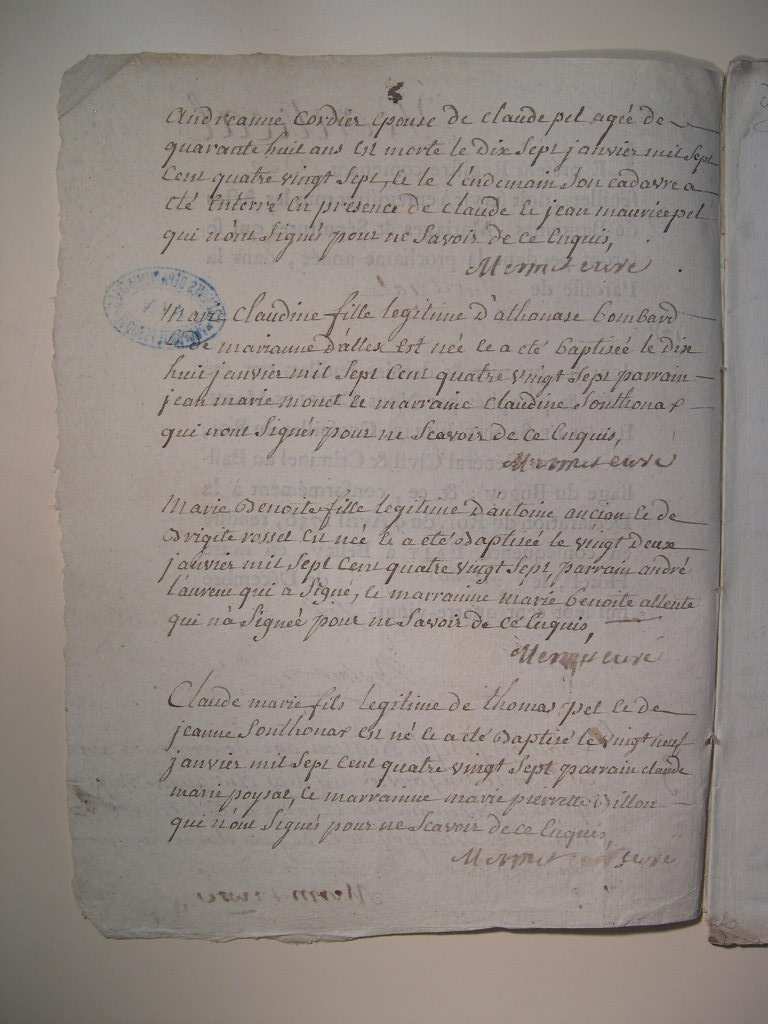 andreanne Cordier epouse de claude pel agée de
quarante huit ans est morte le dix Sept janvier mil Sept
Cent quatre vingt Sept, et le l'endemain Son cadavre a
eté enterré en presence de claude et jean maurice pel
qui n'ont Signés pour ne Savoir de ce Enquis,
Mermet curé
Marie Claudine fille legitime d'athonase bombard
et de marianne d'allex est née et a eté baptisée le dix
huit janvier mil Sept Cent quatre vingt Sept parrain
jean marie monet et marraine claudine Sonthonax
qui nont Signés pour ne Scavoir de ce Enquis,
Mermet curé
Marie benoite fille legitime d'antoine ancian et de
Brigite rosset est née et a eté Baptisée le vingt deux
janvier mil Sept Cent quatre vingt Sept, parrain andré
l'aureur qui a Signé, et marrainne marie benoite allente
qui n'a Signée pour ne Savoir de ce Enquis,
Mermet curé
Claude marie fils legitime de thomas pel et de
jeanne Sonthonax est né et a eté Baptisé le vingt neuf
janvier mil Sept Cent quatre vingt Sept parrain claude
marie poysat, et marrainne marie pierrette Billon
qui n'ont Signés pour ne Scavoir de ce Enquis,
Mermet curé